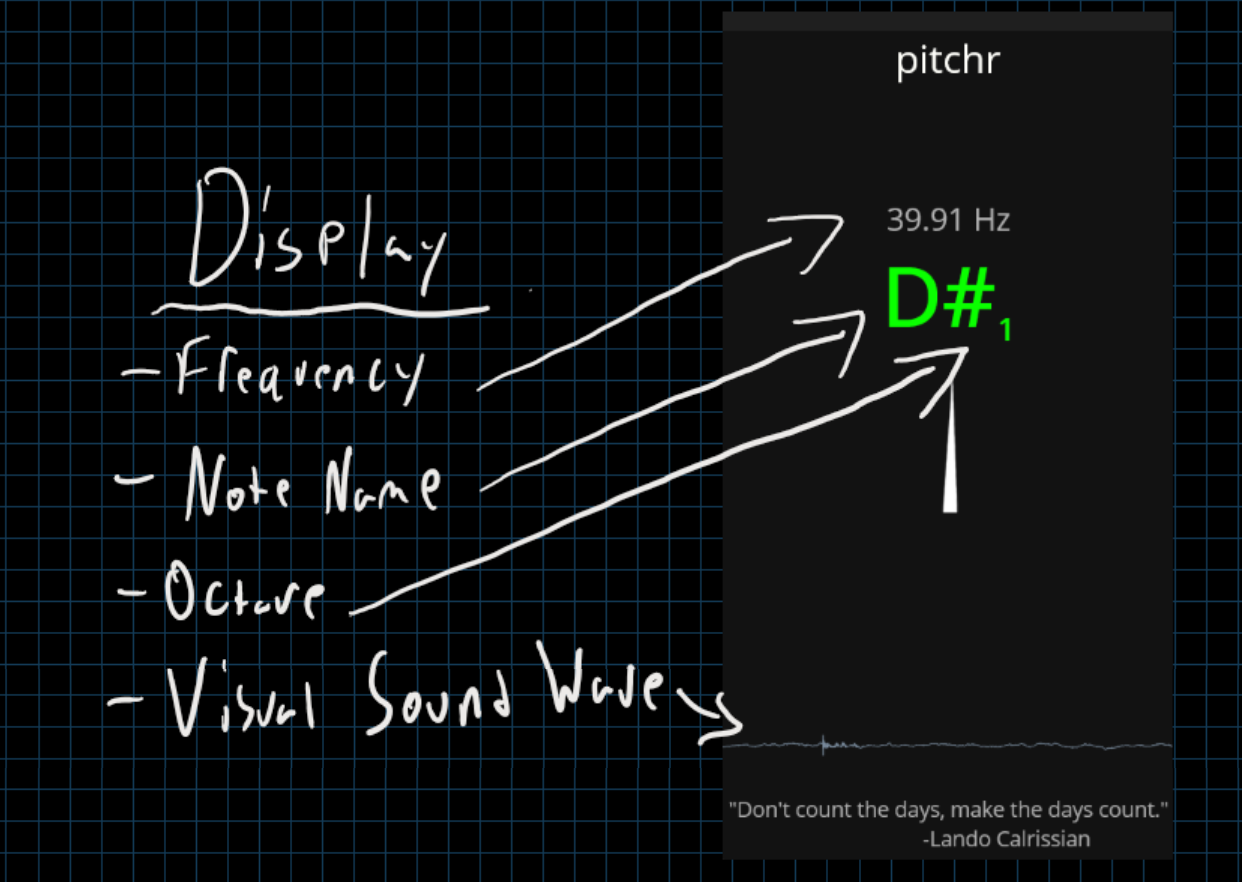 Display
- Frequency
- Note Name
- Octave
- Visual Sound Wave
pitchr
39.91 Hz
D#1
"Don't count the days, make the days count."
-Lando Calrissian